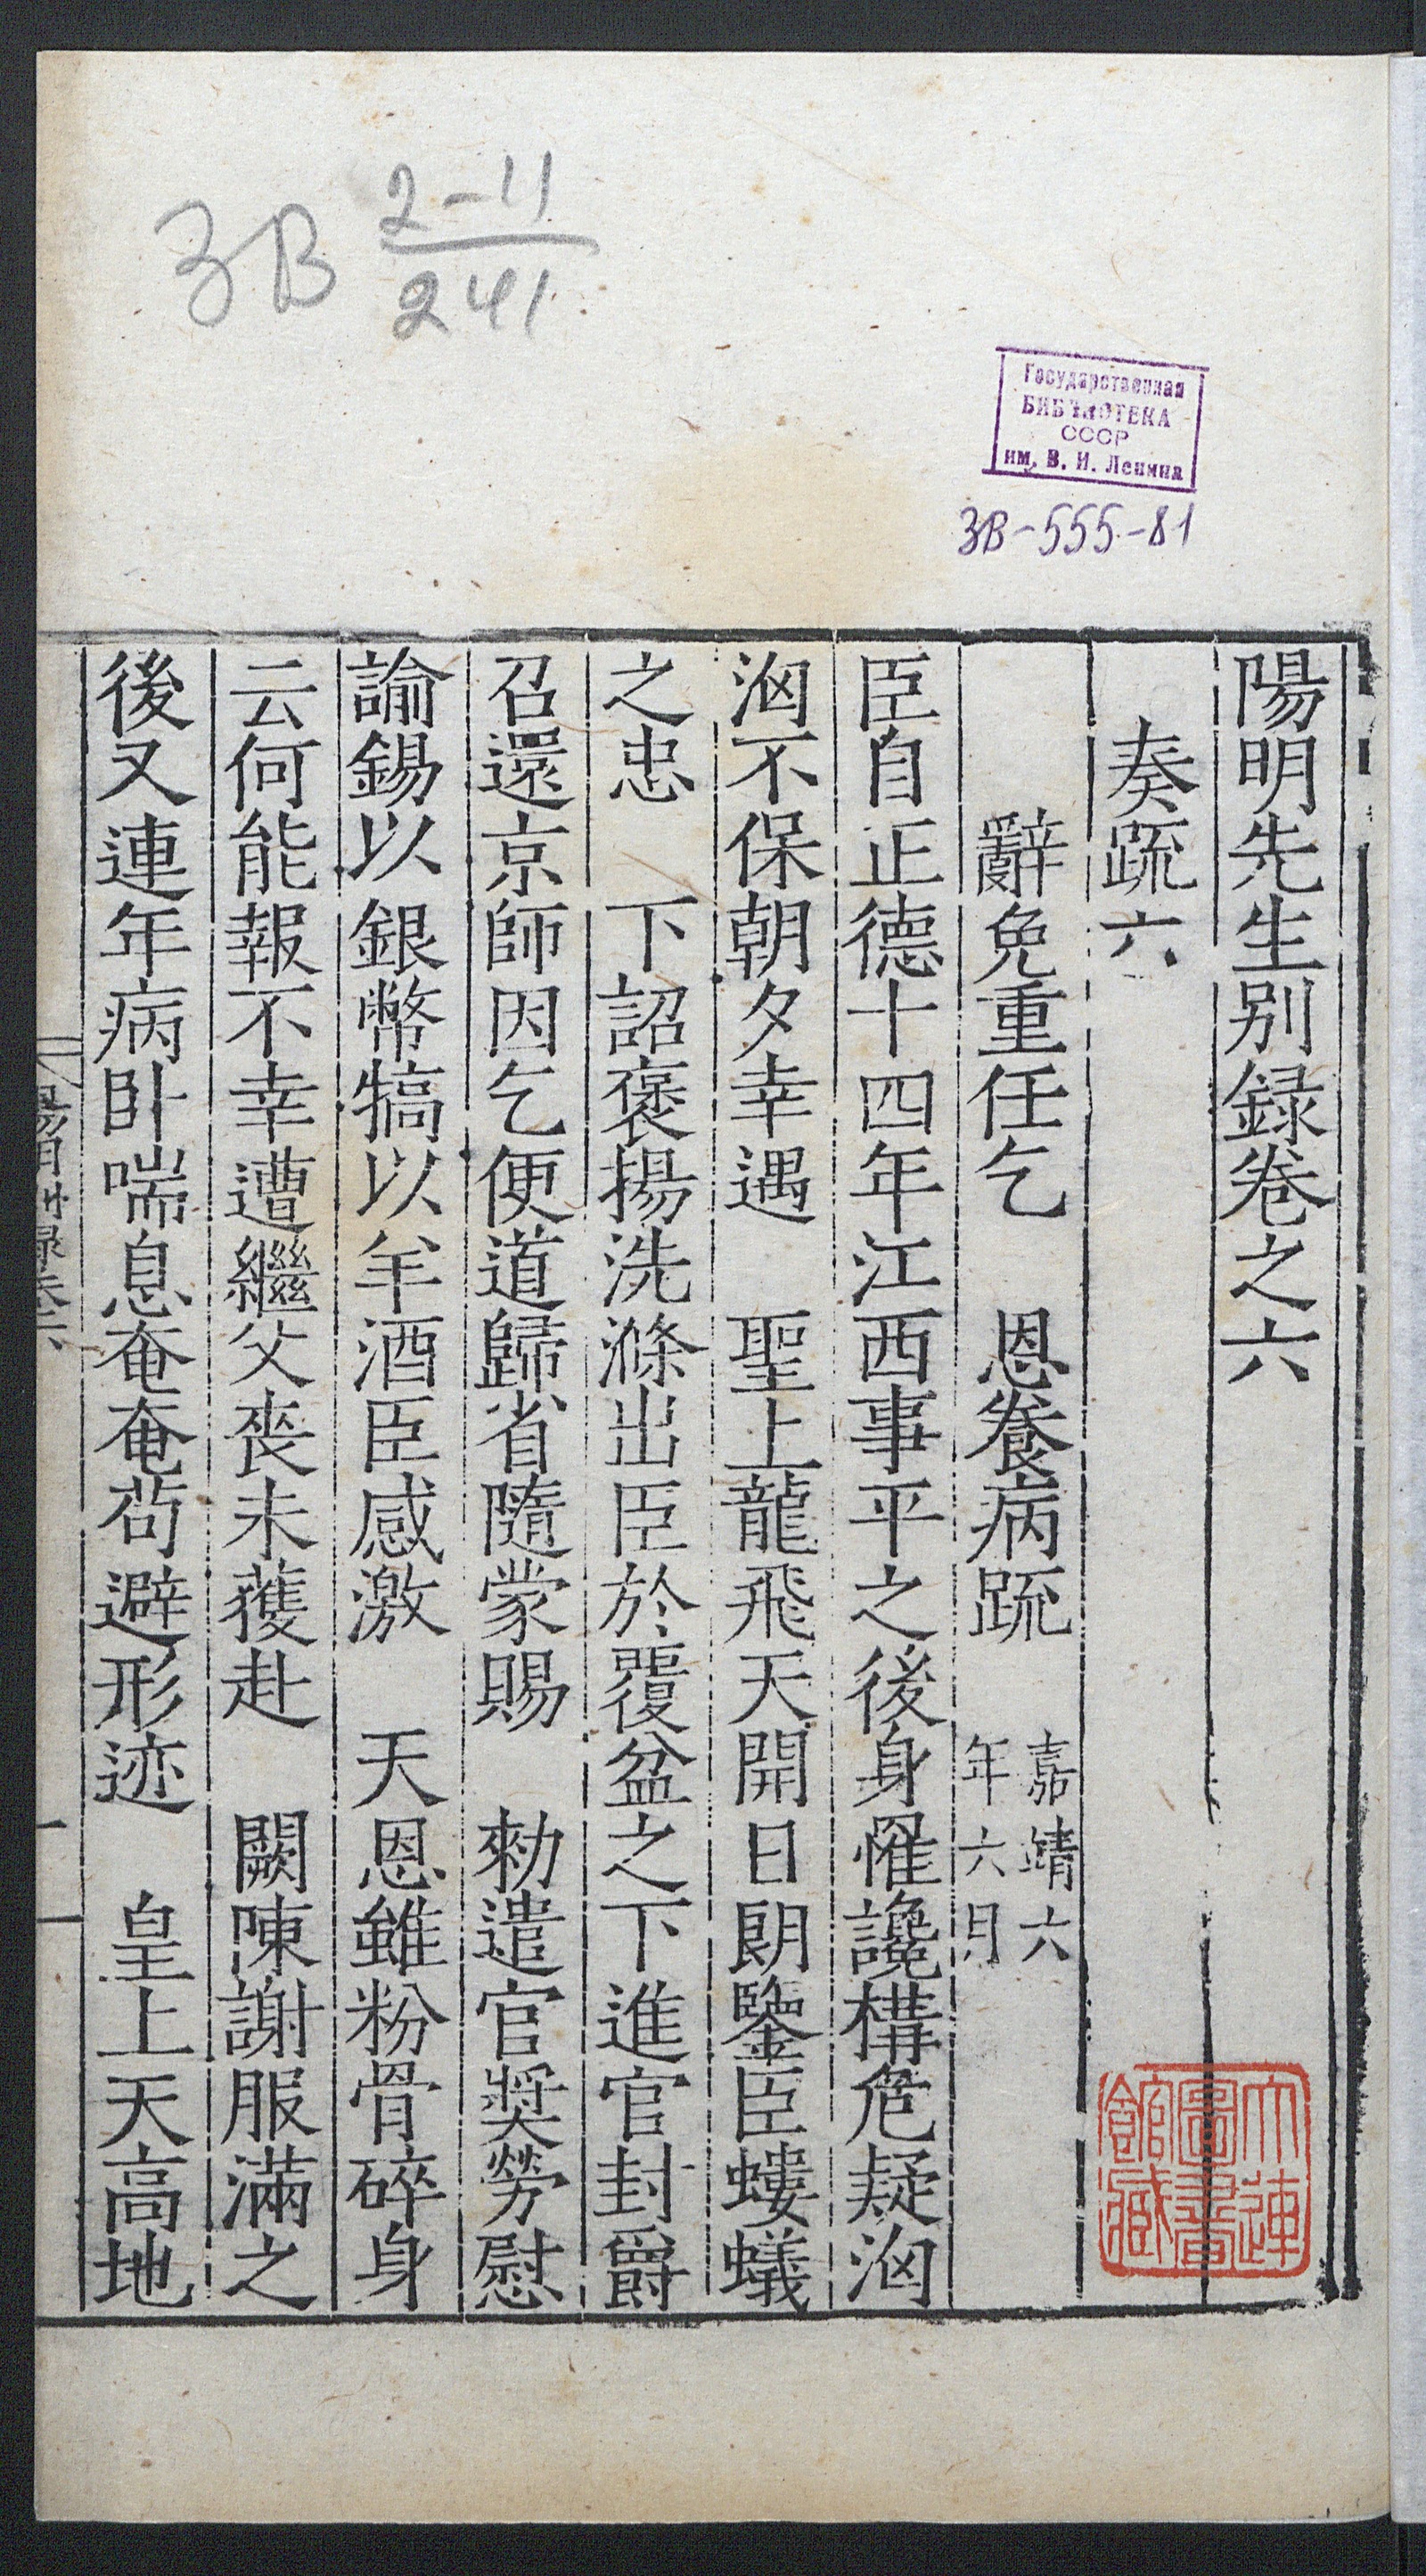 3B 2-11
241
Государственная
БИБЛИОТЕКА
СССР
им. В. И. Ленина
3В-555-81
陽明先生别録卷之六
奏疏六
辭免重任乞　恩養病疏 嘉靖六
年六月
臣自正德十四年江西事平之後身罹讒構危疑洶
洶不保朝夕幸遇　聖上龍飛天開日朗鑒臣螻蟻
之忠　下詔褒揚洗滌出臣於覆盆之下進官封爵
召還京師因乞便道歸省隨蒙賜　勑遣官奬勞慰
諭錫以銀幣犒以羊酒臣感激　天恩雖粉骨碎身
云何能報不幸遭繼父喪未獲赴　闕陳謝服滿之
後又連年病卧喘息奄奄苟避形迹　皇上天高地
大連
圖書
館藏